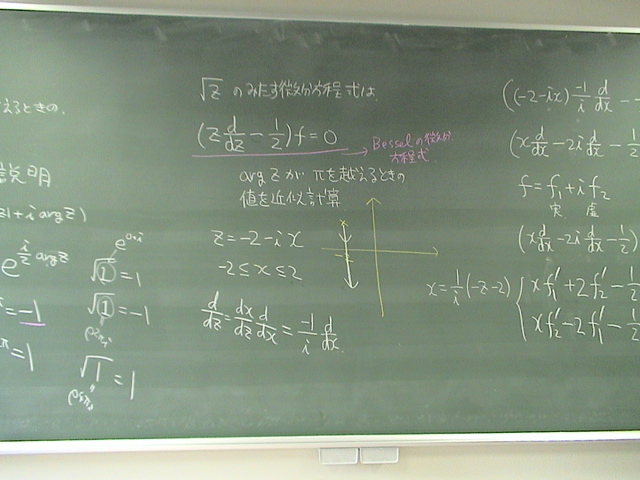 えるときの、
説明
z|+i argz)
e^{\frac{i}{2} argz}
=-1
=1
e^{0×i}
√①=1
√①=-1
√1=1
√z のみたす微分方程式は
(z d/dz - 1/2) f=0
→ Besselの微分
方程式
arg z が πを越えるときの
値を近似計算
z=-2-ix
-2≤x≤2
d/dz = dx/dz d/dx = -1/i d/dx
((-2-ix) -1/i d/dx -
(x d/dx - 2i d/dx - 1/2
f=f₁+if₂
実 虚
(x d/dx - 2i d/dx - 1/2)
x=1/i(-z-2)
xf₁'+2f₂'-1/2
xf₂'-2f₁'-1/2